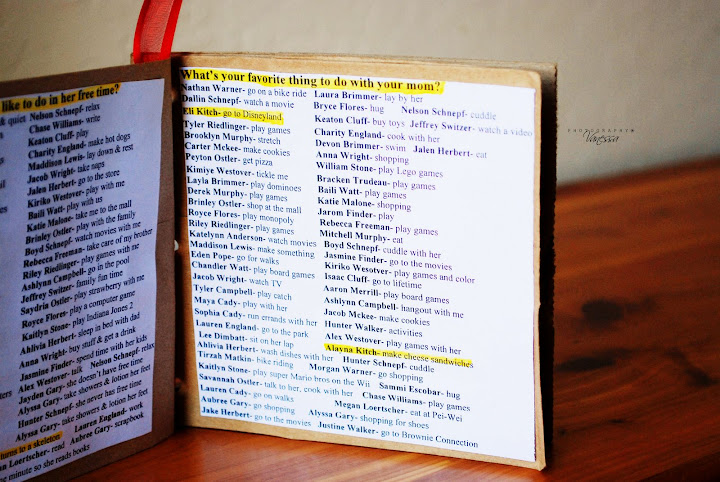 like to do in her free time?
quiet Nelson Schnepf- relax
Chase Williams- write
Keaton Cluff- play
Charity England- make hot dogs
Maddison Lewis- lay down & rest
Jacob Wright- take naps
Jalen Herbert- go to the store
Kiriko Westover- play with me
Baili Watt- play with us
Katie Malone- take me to the mall
Brinley Ostler- play with the family
Boyd Schnepf- watch movies with me
Rebecca Freeman- take care of my brother
Riley Riedlinger- play games with me
Ashlynn Campbell- go in the pool
Jeffrey Switzer- family fun time
Saydrin Ostler- play strawberry with me
Royce Flores- play a computer game
Kaitlyn Stone- play Indiana Jones 2
Ahlivia Herbert- sleep in bed with dad
Anna Wright- buy stuff & get a drink
Jasmine Finder- spend time with her kids
Alex Westover- talk Nelson Schnepf- relax
Jayden Gary- she doesn't have free time
Alyssa Gary- take showers & lotion her feet
Hunter Schnepf- she never has free time
Alyssa Gary- take showers & lotion her feet
turns to a skeleton Lauren England- work
Loertscher- read Aubree Gary- scrapbook
minute so she reads books
What's your favorite thing to do with your mom?
Nathan Warner- go on a bike ride Laura Brimmer- lay by her
Dallin Schnepf- watch a movie Bryce Flores- hug Nelson Schnepf- cuddle
Eli Kitch- go to Disneyland Keaton Cluff- buy toys Jeffrey Switzer- watch a video
Tyler Riedlinger- play games Charity England- cook with her
Brooklyn Murphy- stretch Devon Brimmer- swim Jalen Herbert- eat
Carter Mckee- make cookies Anna Wright- shopping
Peyton Ostler- get pizza William Stone- play Lego games
Kimiye Westover- tickle me Bracken Trudeau- play games
Layla Brimmer- play dominoes Baili Watt- play games
Derek Murphy- play games Katie Malone- shopping
Brinley Ostler- shop at the mall Jarom Finder- play
Royce Flores- play monopoly Rebecca Freeman- play games
Riley Riedlinger- play games Mitchell Murphy- eat
Katelynn Anderson- watch movies Boyd Schnepf- cuddle with her
Maddison Lewis- make something Jasmine Finder- go to the movies
Eden Pope- go for walks Kiriko Wesotver- play games and color
Chandler Watt- play board games Isaac Cluff- go to lifetime
Jacob Wright- watch TV Aaron Merrill- play board games
Tyler Campbell- play catch Ashlynn Campbell- hangout with me
Maya Cady- play with her Jacob Mckee- make cookies
Sophia Cady- run errands with her Hunter Walker- activities
Lauren England- go to the park Alex Westover- play games with her
Lee Dimbatt- sit on her lap Alayna Kitch- make cheese sandwiches
Ahlivia Herbert- wash dishes with her Hunter Schnepf- cuddle
Tirzah Matkin- bike riding Morgan Warner- go shopping
Kaitlyn Stone- play super Mario bros on the Wii Sammi Escobar- hug
Savannah Ostler- talk to her, cook with her Chase Williams- play games
Lauren Cady- go on walks Megan Loertscher- eat at Pei-Wei
Aubree Gary- go shopping Alyssa Gary- shopping for shoes
Jake Herbert- go to the movies Justine Walker- go to Brownie Connection
PHOTOGRAPHY
Vanessa